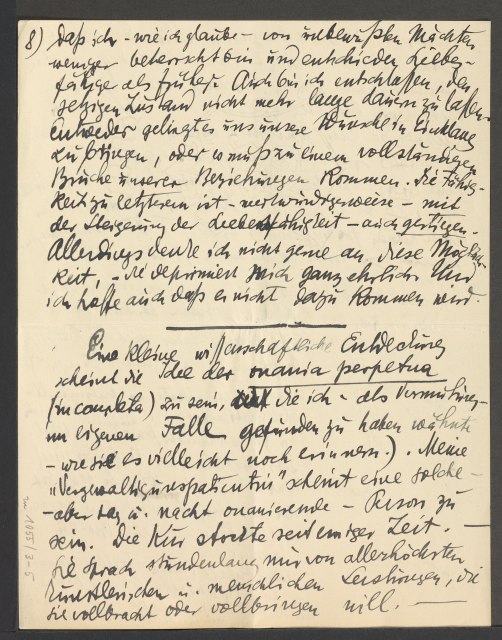 8) daß ich - wie ich glaube - von unbewußten Mächten
weniger beherrscht bin und entschieden liebes-
fähiger als früher. Auch bin ich entschlossen, den
jetzigen Zustand nicht mehr lange dauern zu lassen
entweder gelingt es uns unsere Wünsche in Einklang
zu bringen, oder es muß zu einem vollständigen
Bruche unserer Beziehungen kommen. Die Fähig-
keit zu letzterem ist - merkwürdigerweise - mit
der Steigerung der Liebesfähigkeit - auch gestiegen.
Allerdings denke ich nicht gerne an diese Möglich-
keit, - sie deprimiert mich ganz ehrlich. Und
ich hoffe auch daß es nicht dazu kommen wird.
Eine kleine wissenschaftliche Entdeckung
scheint die Idee der onania perpetua
(incompleta) zu sein, die ich - als Vermutung -
im eigenen Falle gefunden zu haben wähnte
- wie sie es vielleicht noch erinnern.). Meine
„Vergewaltigungspatientin" scheint eine solche -
- aber tag u. nacht onanierende - Person zu
sein. Die Kur stockte seit einiger Zeit. -
Sie sprach stundenlang nur von allerhöchsten
künstlerischen u. menschlichen Leistungen, die
sie vollbracht oder vollbringen will. -